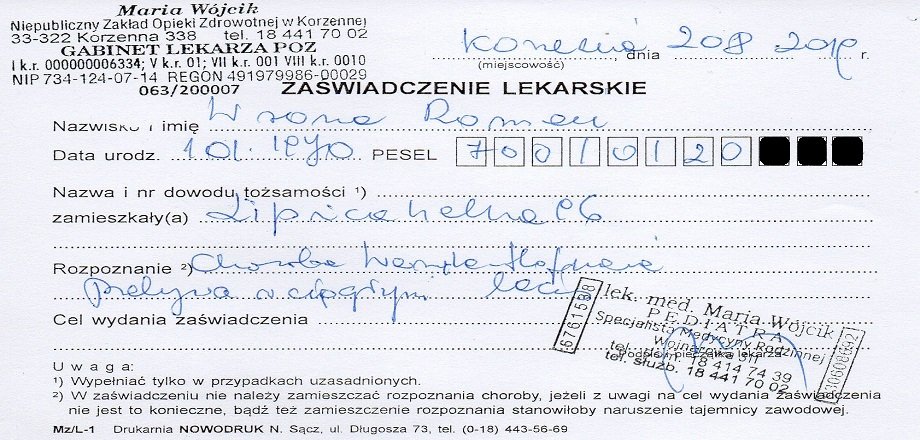 Maria Wójcik
Niepubliczny Zakład Opieki Zdrowotnej w Korzennej
33-322 Korzenna 338 tel. 18 441 70 02
GABINET LEKARZA POZ
I k.r. 000000006334; V k.r. 01; VII kr. 001 VIII kr. 0010
NIP 734-124-07-14 REGON 491979986-00029
063/200007
dnia 208 r.
(miejscowość)
ZAŚWIADCZENIE LEKARSKIE
Nazwisko i imię Wrona Roman
Data urodz. 1.01.1970 PESEL 70010120
Nazwa i nr dowodu tożsamości ¹)
zamieszkały(a) Lipnica Wielka
Rozpoznanie ²) Choroba
w ciągłym
Cel wydania zaświadczenia
lek. med. Maria Wójcik
PEDIATRA
Specjalista Medycyny Rodzinnej
Wojnarowa 311
Podpis i pieczątka lekarza
tel. dom. 18 414 74 39
tel. służb. 18 441 70 02
Uwaga:
¹) Wypełniać tylko w przypadkach uzasadnionych.
²) W zaświadczeniu nie należy zamieszczać rozpoznania choroby, jeżeli z uwagi na cel wydania zaświadczenia
nie jest to konieczne, bądź też zamieszczenie rozpoznania stanowiłoby naruszenie tajemnicy zawodowej.
Mz/L-1 Drukarnia NOWODRUK N. Sącz, ul. Długosza 73, tel. (0-18) 443-56-69